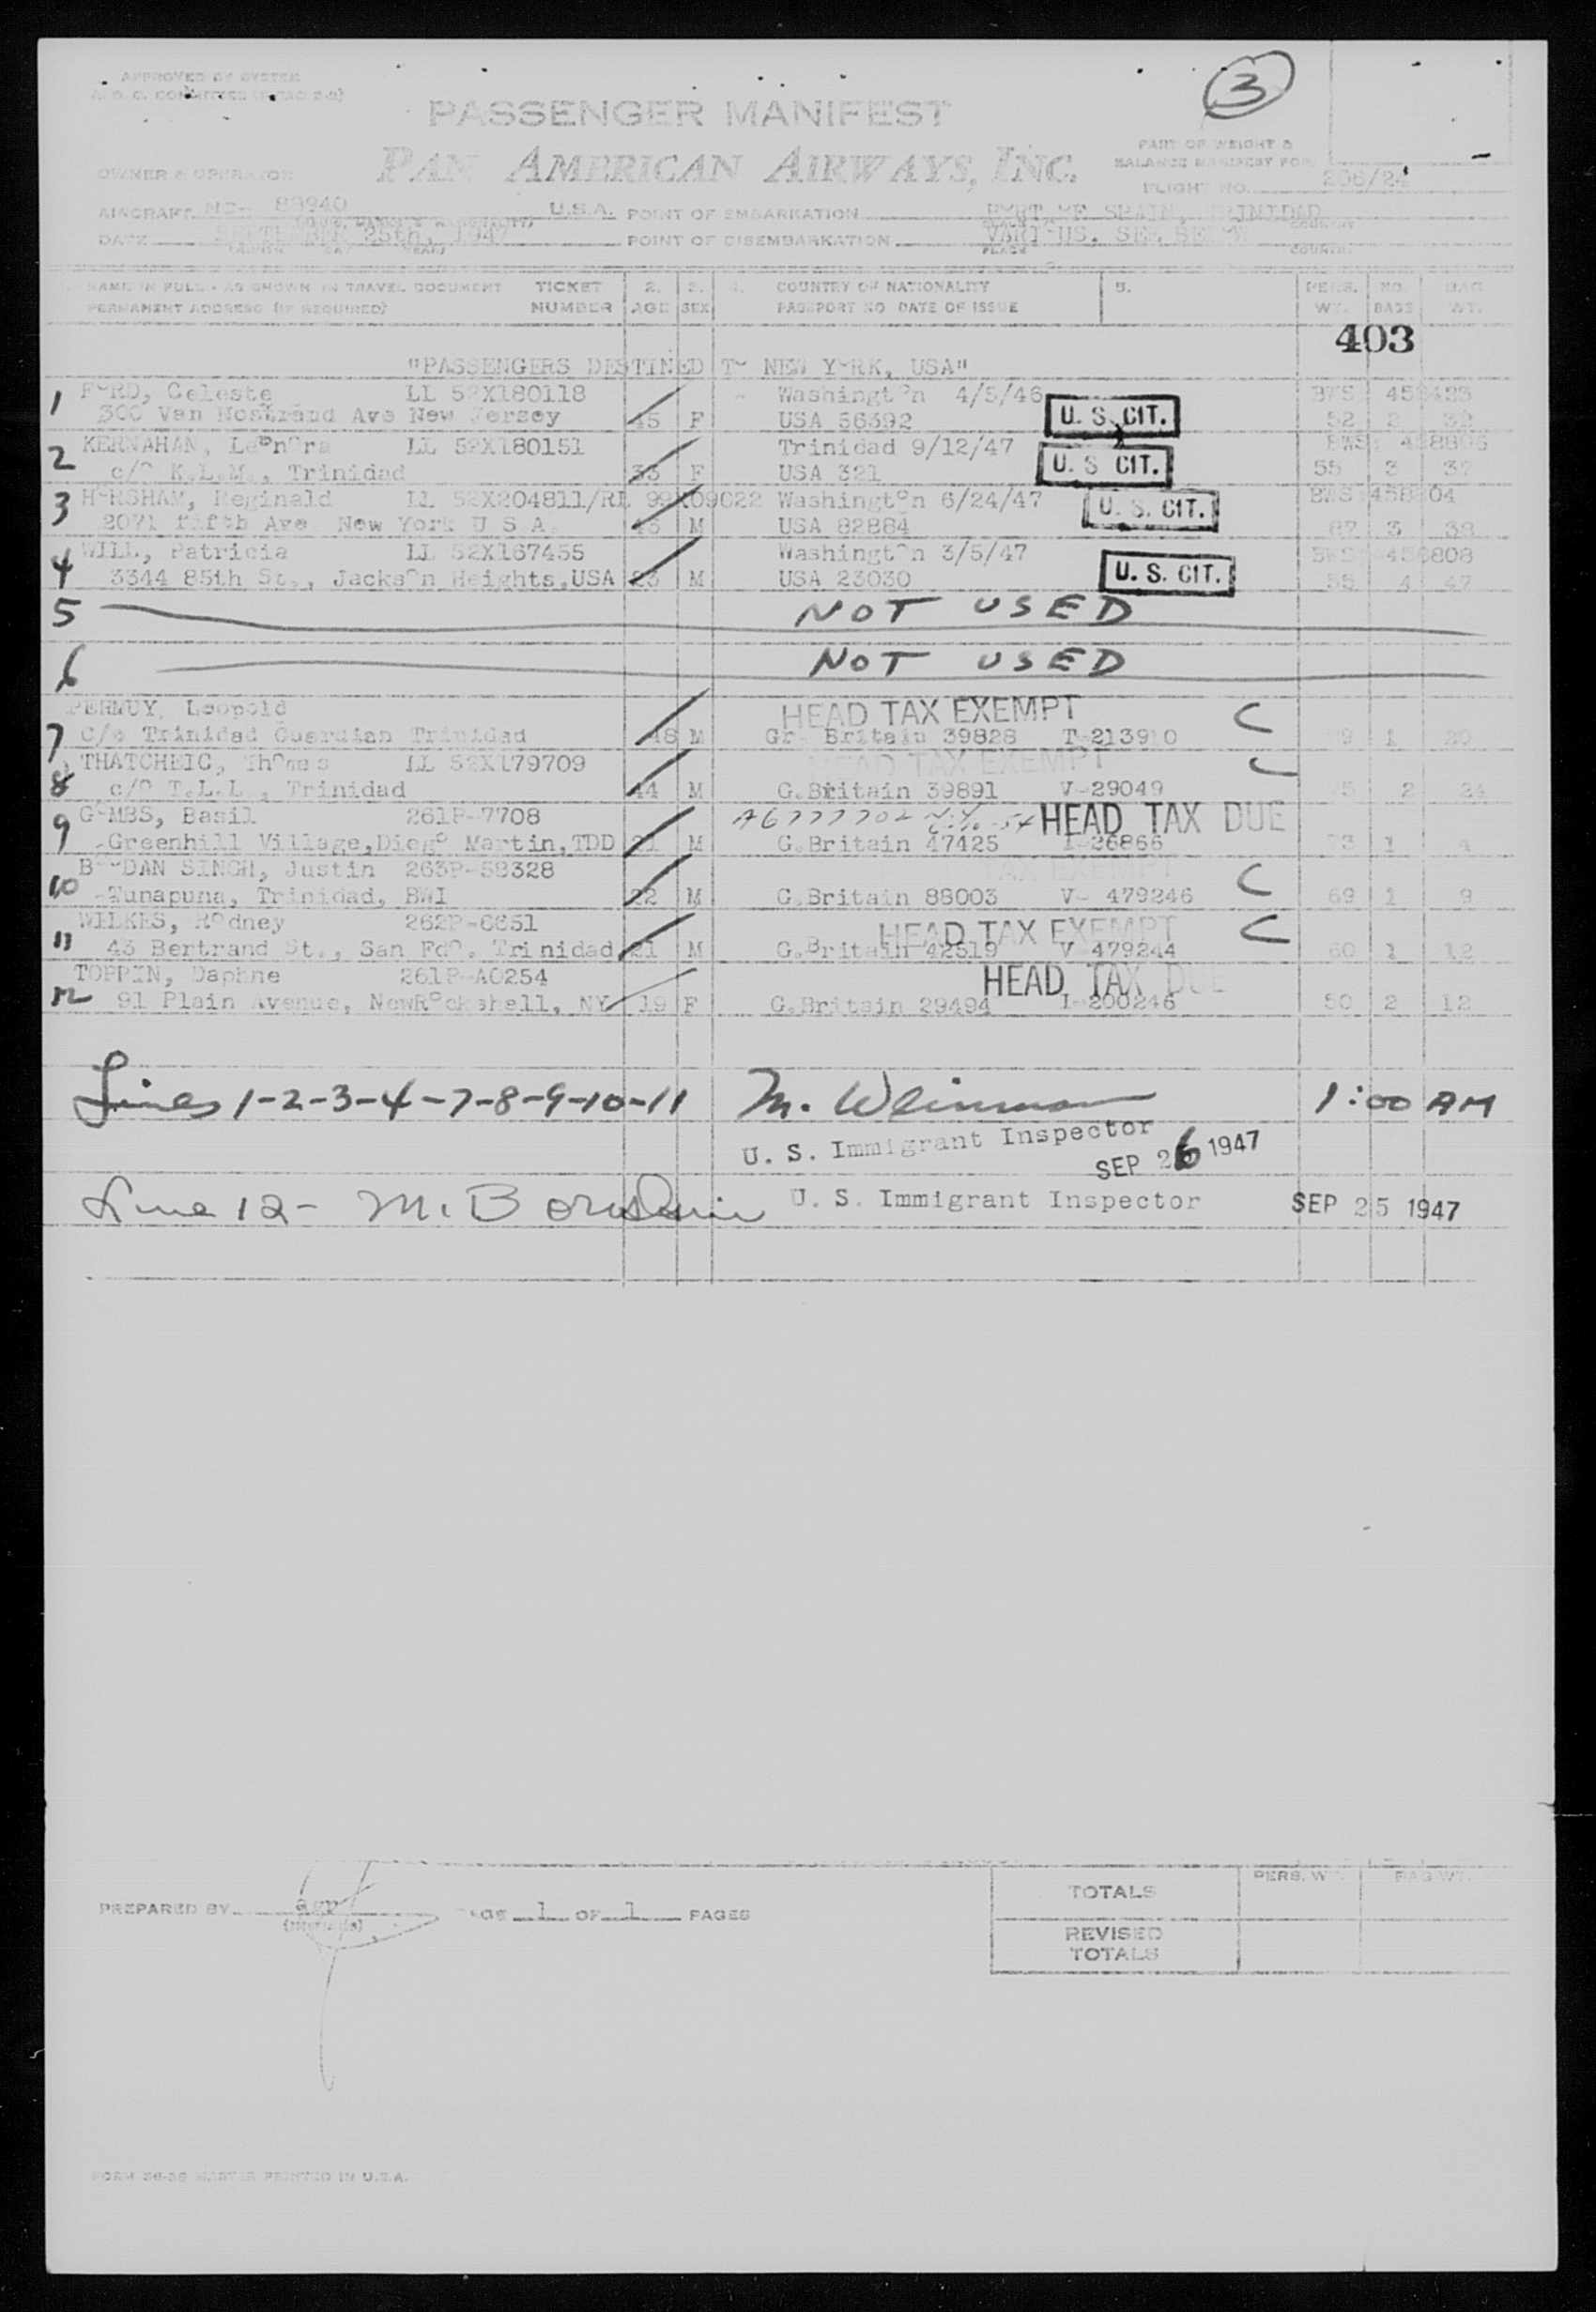 APPROVED BY SYSTEM
3
PASSENGER MANIFEST
PAN AMERICAN AIRWAYS, INC.
PART OF WEIGHT &
BALANCE MANIFEST FOR
OWNER & OPERATOR
FLIGHT NO. 206/24
AIRCRAFT NC- 89940 U.S.A. POINT OF EMBARKATION PORT OF SPAIN, TRINIDAD
DATE SEPTEMBER 25th, 1947 POINT OF DISEMBARKATION VARIOUS, SEE BELOW
PLACE COUNTRY
NAME IN FULL - AS SHOWN IN TRAVEL DOCUMENT TICKET 2. 3. 4. COUNTRY OF NATIONALITY 5. PERS. NO. BAG
PERMANENT ADDRESS (IF REQUIRED) NUMBER AGE SEX PASSPORT NO DATE OF ISSUE WT. BAGS WT.
403
"PASSENGERS DESTINED TO NEW YORK, USA"
1 FORD, Celeste LL 52X180118 Washington 4/5/46
300 Van Nostrand Ave New Jersey 45 F USA 56392 U. S. CIT. 52 2
2 KERNAHAN, Leonora LL 52X180151 Trinidad 9/12/47
c/o K.L.M., Trinidad 33 F USA 321 U. S CIT. 55 3 37
3 HORSHAM, Reginald LL 52X204811/RL 99X09022 Washington 6/24/47
2071 fifth Ave New York U S A. M USA 82884 U. S. CIT. 87 3 38
4 WILL, Patricia LL 52X167455 Washington 3/5/47
3344 85th St., Jackson Heights,USA 23 M USA 23030 U. S. CIT. 55 4 47
5 NOT USED
6 NOT USED
PERNUY, Leopold HEAD TAX EXEMPT C
7 c/o Trinidad Guardian Trinidad 48 M Gr Britain 39828 T-213910 1 20
THATCHEIC, Thomas LL 52X179709 HEAD TAX EXEMPT C
8 c/o T.L.L., Trinidad 44 M G.Britain 39891 V-29049 2 24
9 GOMBS, Basil 261P-7708 A6777702 HEAD TAX DUE
Greenhill Village,Diego Martin,TDD 21 M G.Britain 47425 I-26866 1
BOODAN SINGH, Justin 263P-58328 TAX EXEMPT C
10 Tunapuna, Trinidad, BWI 22 M G.Britain 88003 V- 479246 69 1 9
WILKES, Rodney 262P-6651 HEAD TAX EXEMPT C
11 43 Bertrand St., San Fdo. Trinidad 21 M G.Britain 42519 V 479244 60 1 12
TOPPIN, Daphne 261P-A0254 HEAD TAX DUE
12 91 Plain Avenue, NewRockshell, NY 19 F G.Britain 29494 I-200246 50 2 12
Lines 1-2-3-4-7-8-9-10-11 M. Weinman 1:00 AM
U. S. Immigrant Inspector
SEP 26 1947
Line 12- M. Bornstein U. S. Immigrant Inspector SEP 25 1947
PREPARED BY agp PAGE 1 OF 1 PAGES
(INITIALS)
TOTALS PERS. WT. BAG WT.
REVISED
TOTALS
FORM 36-38 MASTER PRINTED IN U.S.A.